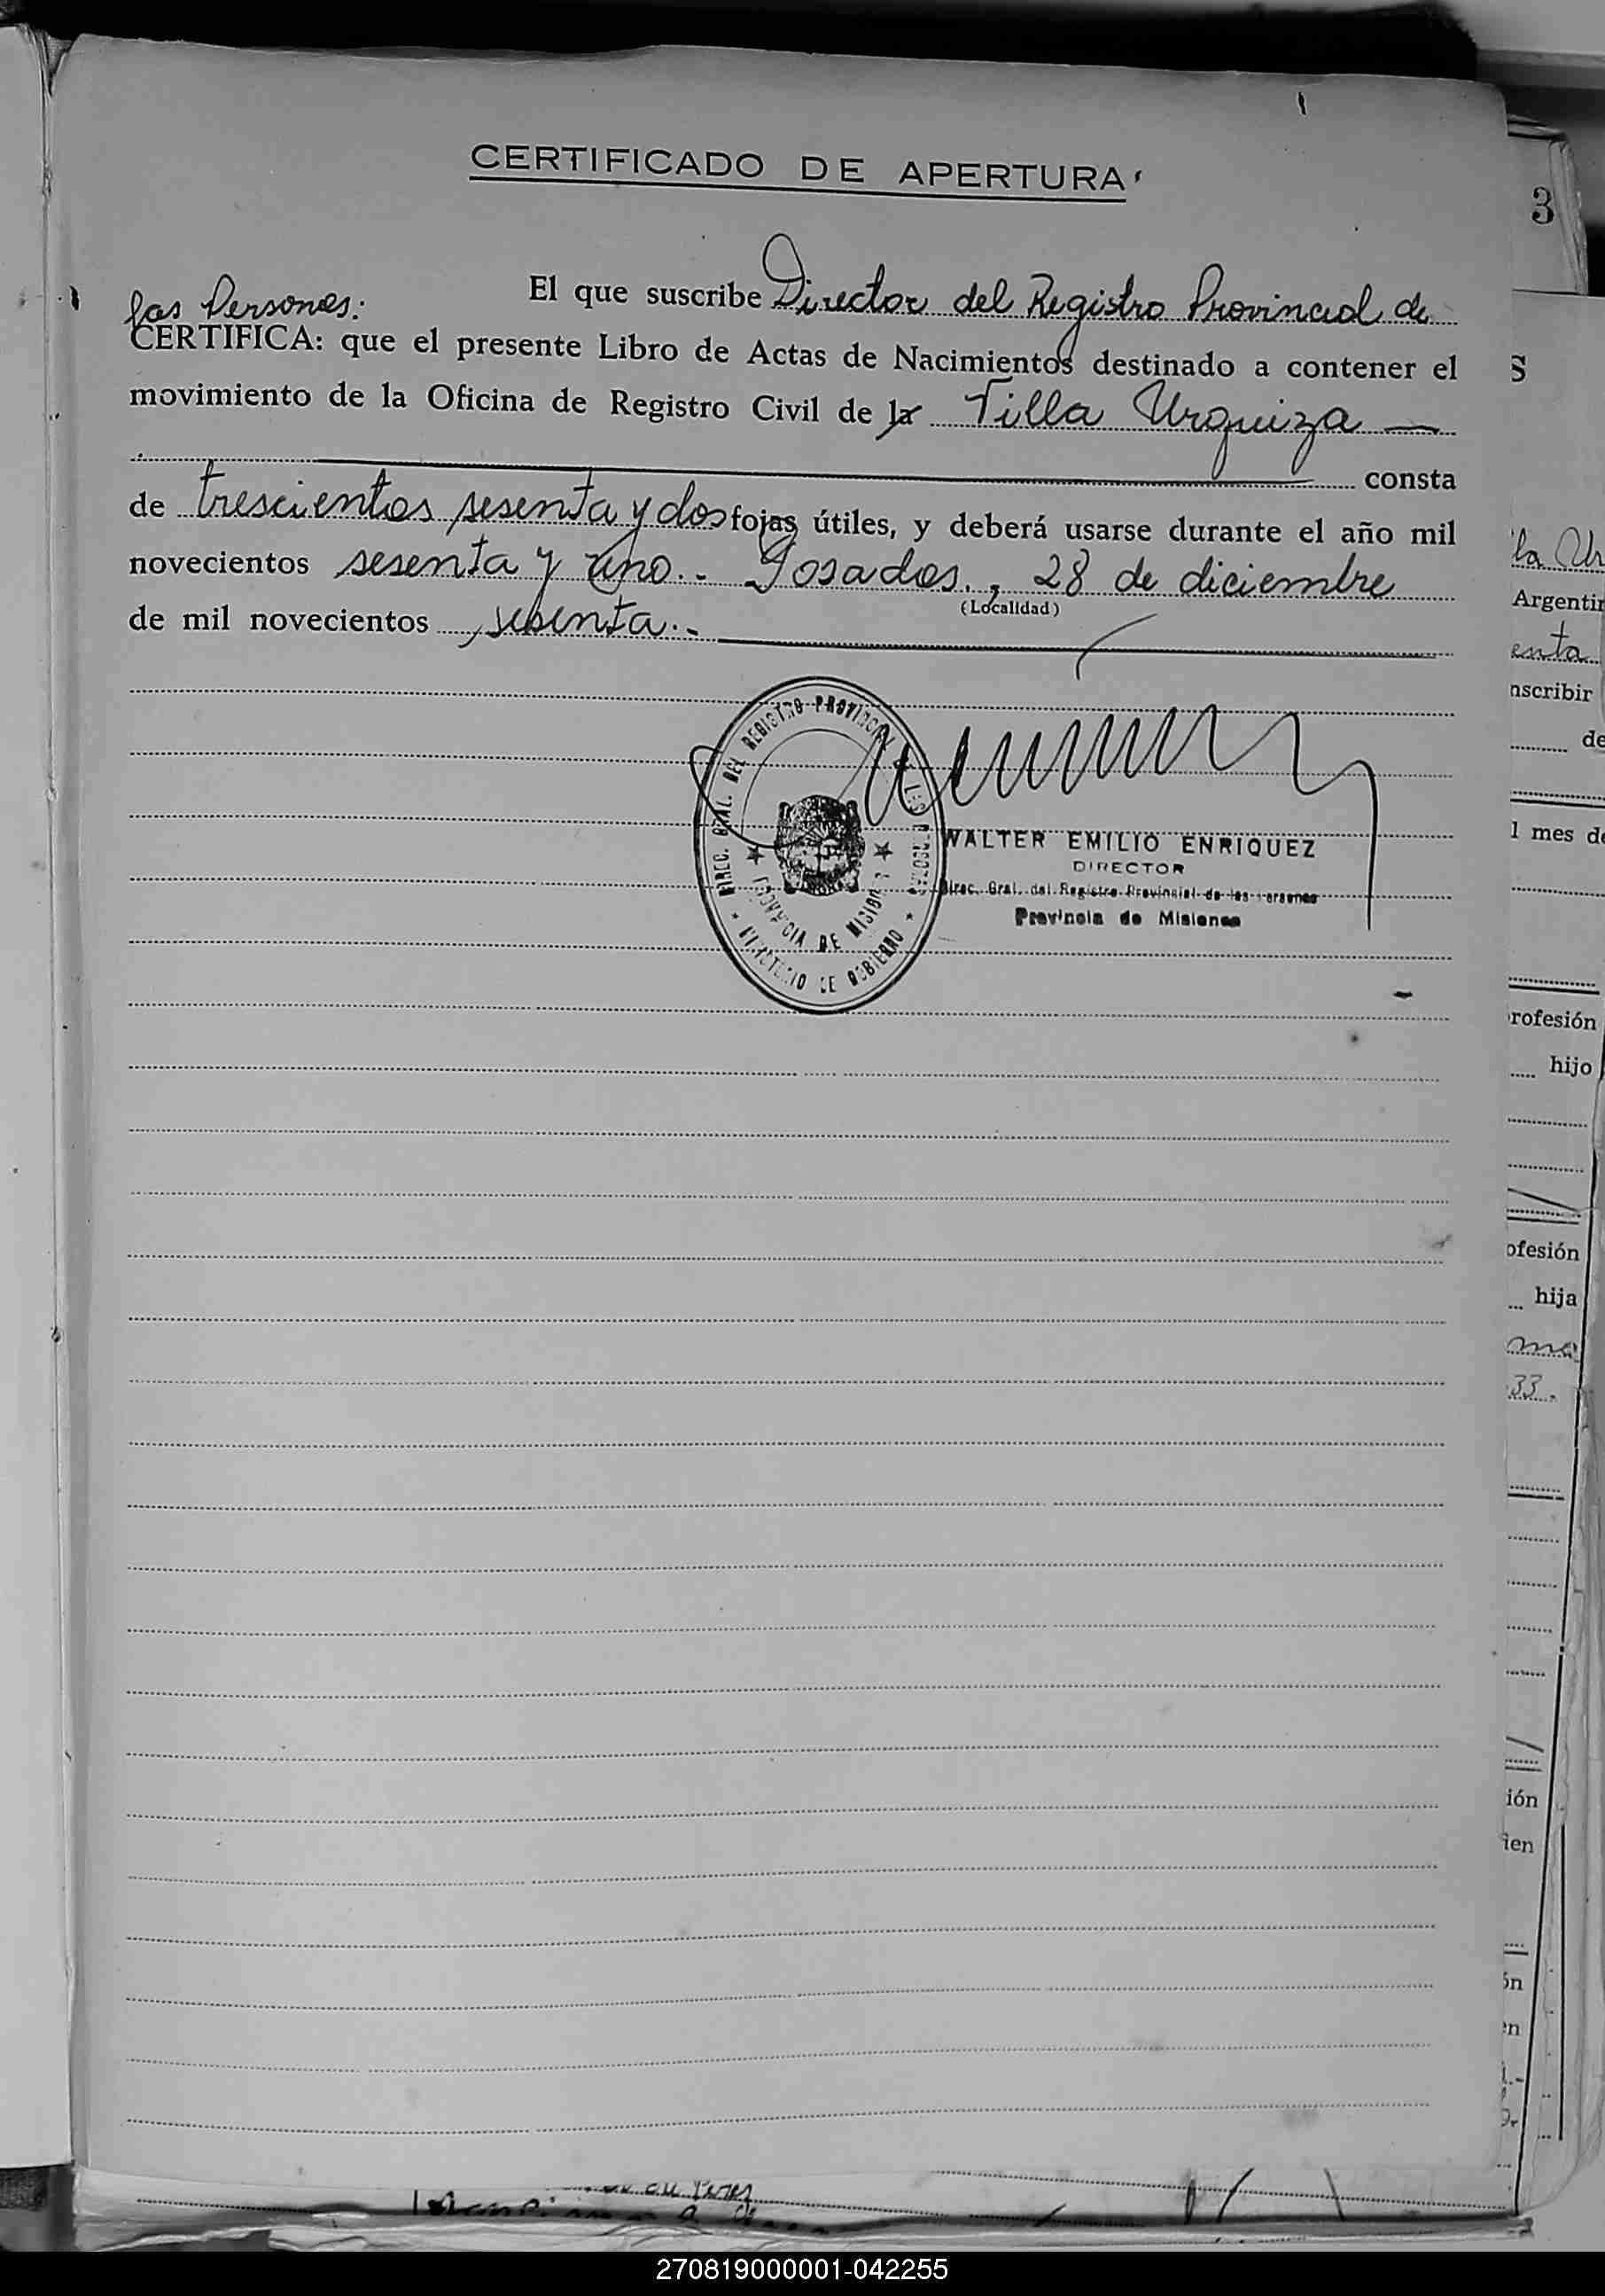 CERTIFICADO DE APERTURA
3
El que suscribe Director del Registro Provincial de
las Personas:
CERTIFICA: que el presente Libro de Actas de Nacimientos destinado a contener el
movimiento de la Oficina de Registro Civil de la Villa Urquiza
consta
de trescientos sesenta y dos fojas útiles, y deberá usarse durante el año mil
novecientos sesenta y uno.- Posadas, 28 de diciembre
(Localidad)
de mil novecientos sesenta.-
DIREC. GRAL. DEL REGISTRO PROVINCIAL DE LAS PERSONAS
PROVINCIA DE MISIONES
MINISTERIO DE GOBIERNO
WALTER EMILIO ENRIQUEZ
DIRECTOR
Direc. Gral. del Registro Provincial de las Personas
Provincia de Misiones
S
la Ur
Argentin
enta
nscribir
de
l mes de
rofesión
hijo
ofesión
hija
33.
ión
ien
ón
en
270819000001-042255